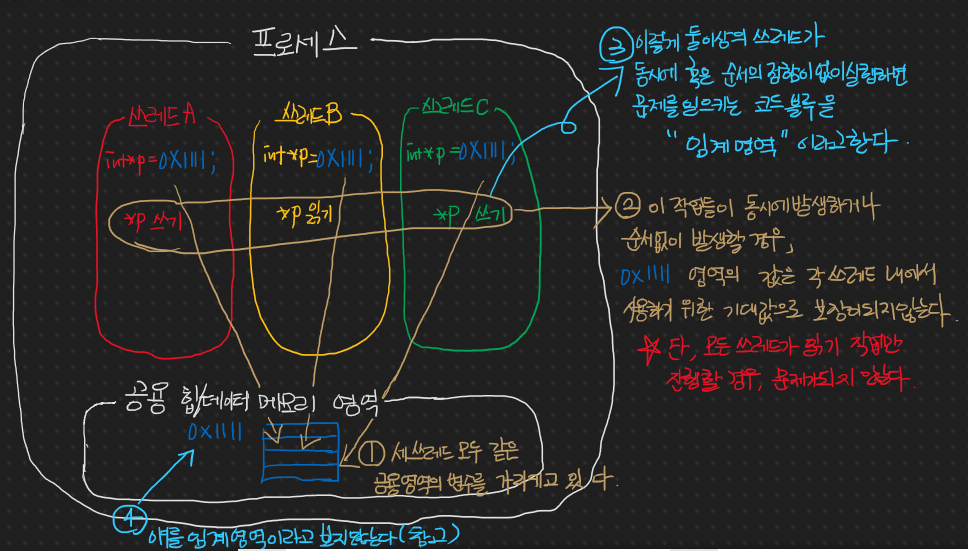 프로세스
쓰레드A
int *p = 0X1111;
*p 쓰기
쓰레드B
int *p = 0X1111;
*p 읽기
쓰레드C
int *p = 0X1111;
*p 쓰기
공용 힙/데이터 메모리 영역
0X1111
① 세 쓰레드 모두 같은
공용영역의 변수를 가리키고 있다.
② 이 작업들이 동시에 발생하거나
순서없이 발생할 경우,
0X1111 영역의 값은 각 쓰레드 내에서
사용하기 위한 기대값으로 보장되지않는다.
☆ 단, 모든 쓰레드가 읽기 작업만
진행할 경우, 문제가되지 않는다.
③ 이렇게 둘이상의 쓰레드가
동시에 혹은 순서의 없이실행하면
문제를 일으키는 코드 블록을
"임계영역" 이라고한다.
④ 얘를 임계영역이라고 보지않는다(참고)